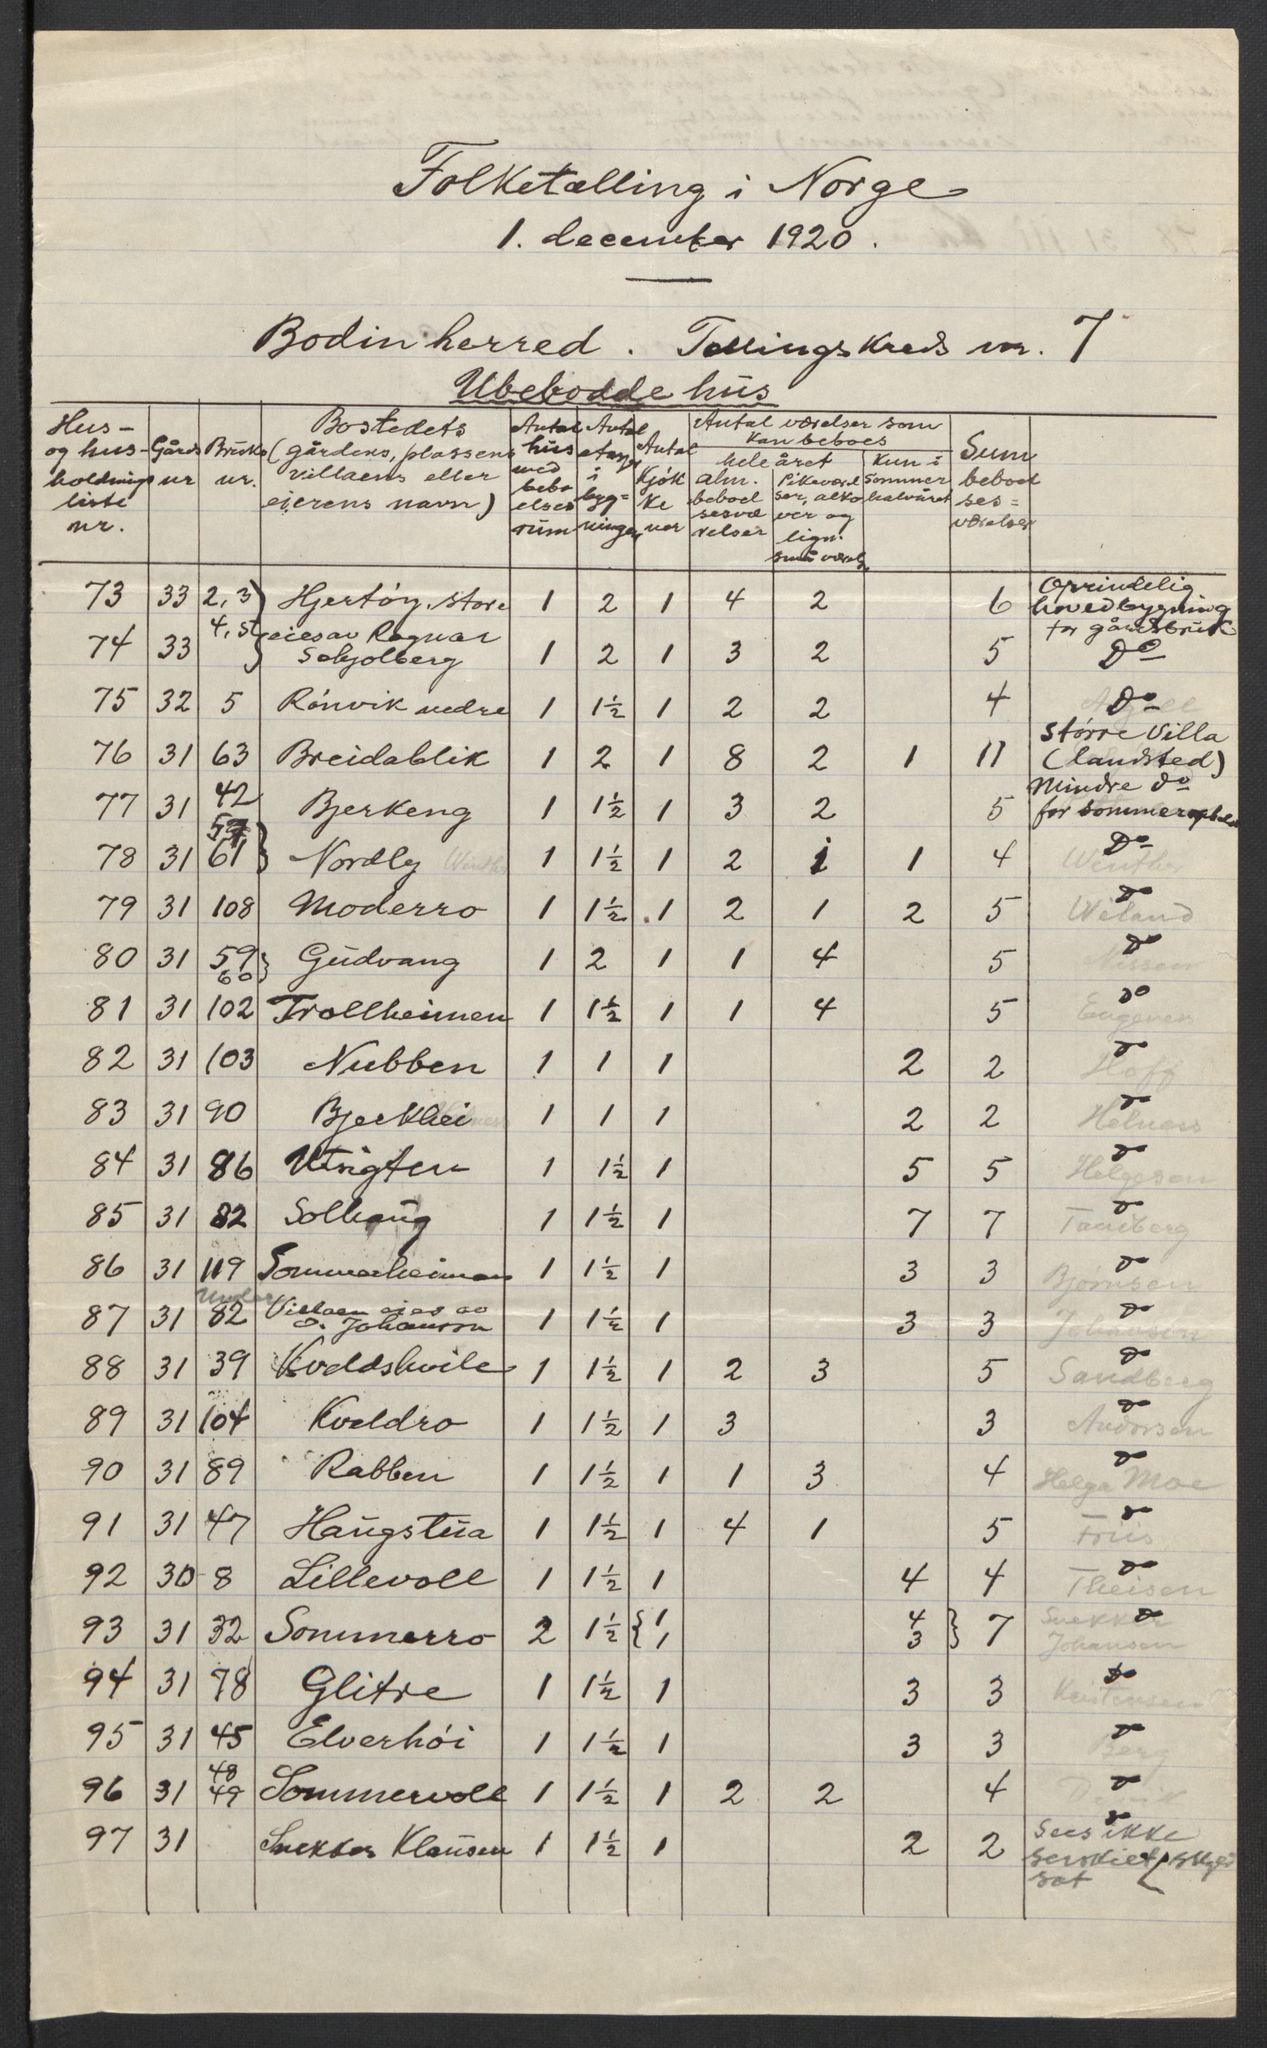 Folketælling i Norge
1. december 1920.
Bodin herred. Tællingskreds nr. 7
Ubebodde hus
Hus- og hus- holdnings liste nr. | Gårds nr | Bruks nr. | Bostedets (gårdens, plassens villaens eller eierens navn) | Antal hus med bebo elses rum | Antal etasjer i byg= ninger | Antal Kjøk ke ner | Antal værelser som kan beboes | Sum beboel ses= værelser
hele året | kun i sommer halvåret
alm. beboel sesvæ relser | Pikeværel ser, alko ver og lign. små værels.
73 33 2, 3 Hjertøy, store 1 2 1 4 2 6 Oprindelig hovedbygning for gårdsbruk
74 33 4, 5 eies av Ragnar Schjolberg 1 2 1 3 2 5 Do
75 32 5 Rønvik nedre 1 1½ 1 2 2 4 Do
76 31 63 Breidablik 1 2 1 8 2 1 11 Større Villa (landsted)
77 31 42 Bjerkeng 1 1½ 1 3 2 5 Mindre do for sommerophold
78 31 57 61 Nordly 1 1½ 1 2 1 1 4 Do Winther
79 31 108 Moderro 1 1½ 1 2 1 2 5 do Wiland
80 31 59 60 Gudvang 1 2 1 1 4 5 do Nissen
81 31 102 Trollheimen 1 1½ 1 1 4 5 do
82 31 103 Nubben 1 1 1 2 2 do Hoff
83 31 90 Bjerkhei 1 1 1 2 2 do Helness
84 31 86 Utsigten 1 1½ 1 5 5 do Helgesen
85 31 82 Solhaug 1 1½ 1 7 7 do
86 31 119 Sommerheimen 1 1½ 1 3 3 do Bjørnsen
87 31 Under 82 Villaen eies av O. Johansen 1 1½ 1 3 3 do Johansen
88 31 39 Kveldshvile 1 1½ 1 2 3 5 do Sandberg
89 31 104 Kveldro 1 1½ 1 3 3 do Andersen
90 31 89 Rabben 1 1½ 1 1 3 4 do Helga Moe
91 31 47 Haugstua 1 1½ 1 4 1 5 do Friis
92 30 8 Lillevoll 1 1½ 1 4 4 do Theisen
93 31 32 Sommerro 2 1½ { 1 1 4 3 } 7 do Snekker Johansen
94 31 78 Glitre 1 1½ 1 3 3 do Kristensen
95 31 45 Elverhøi 1 1½ 1 3 3 do Berg
96 31 48 49 Sommervoll 1 1½ 1 2 2 4 do
97 31 Snekker Klausen 1 1½ 1 2 2 do Sees ikke særskilt